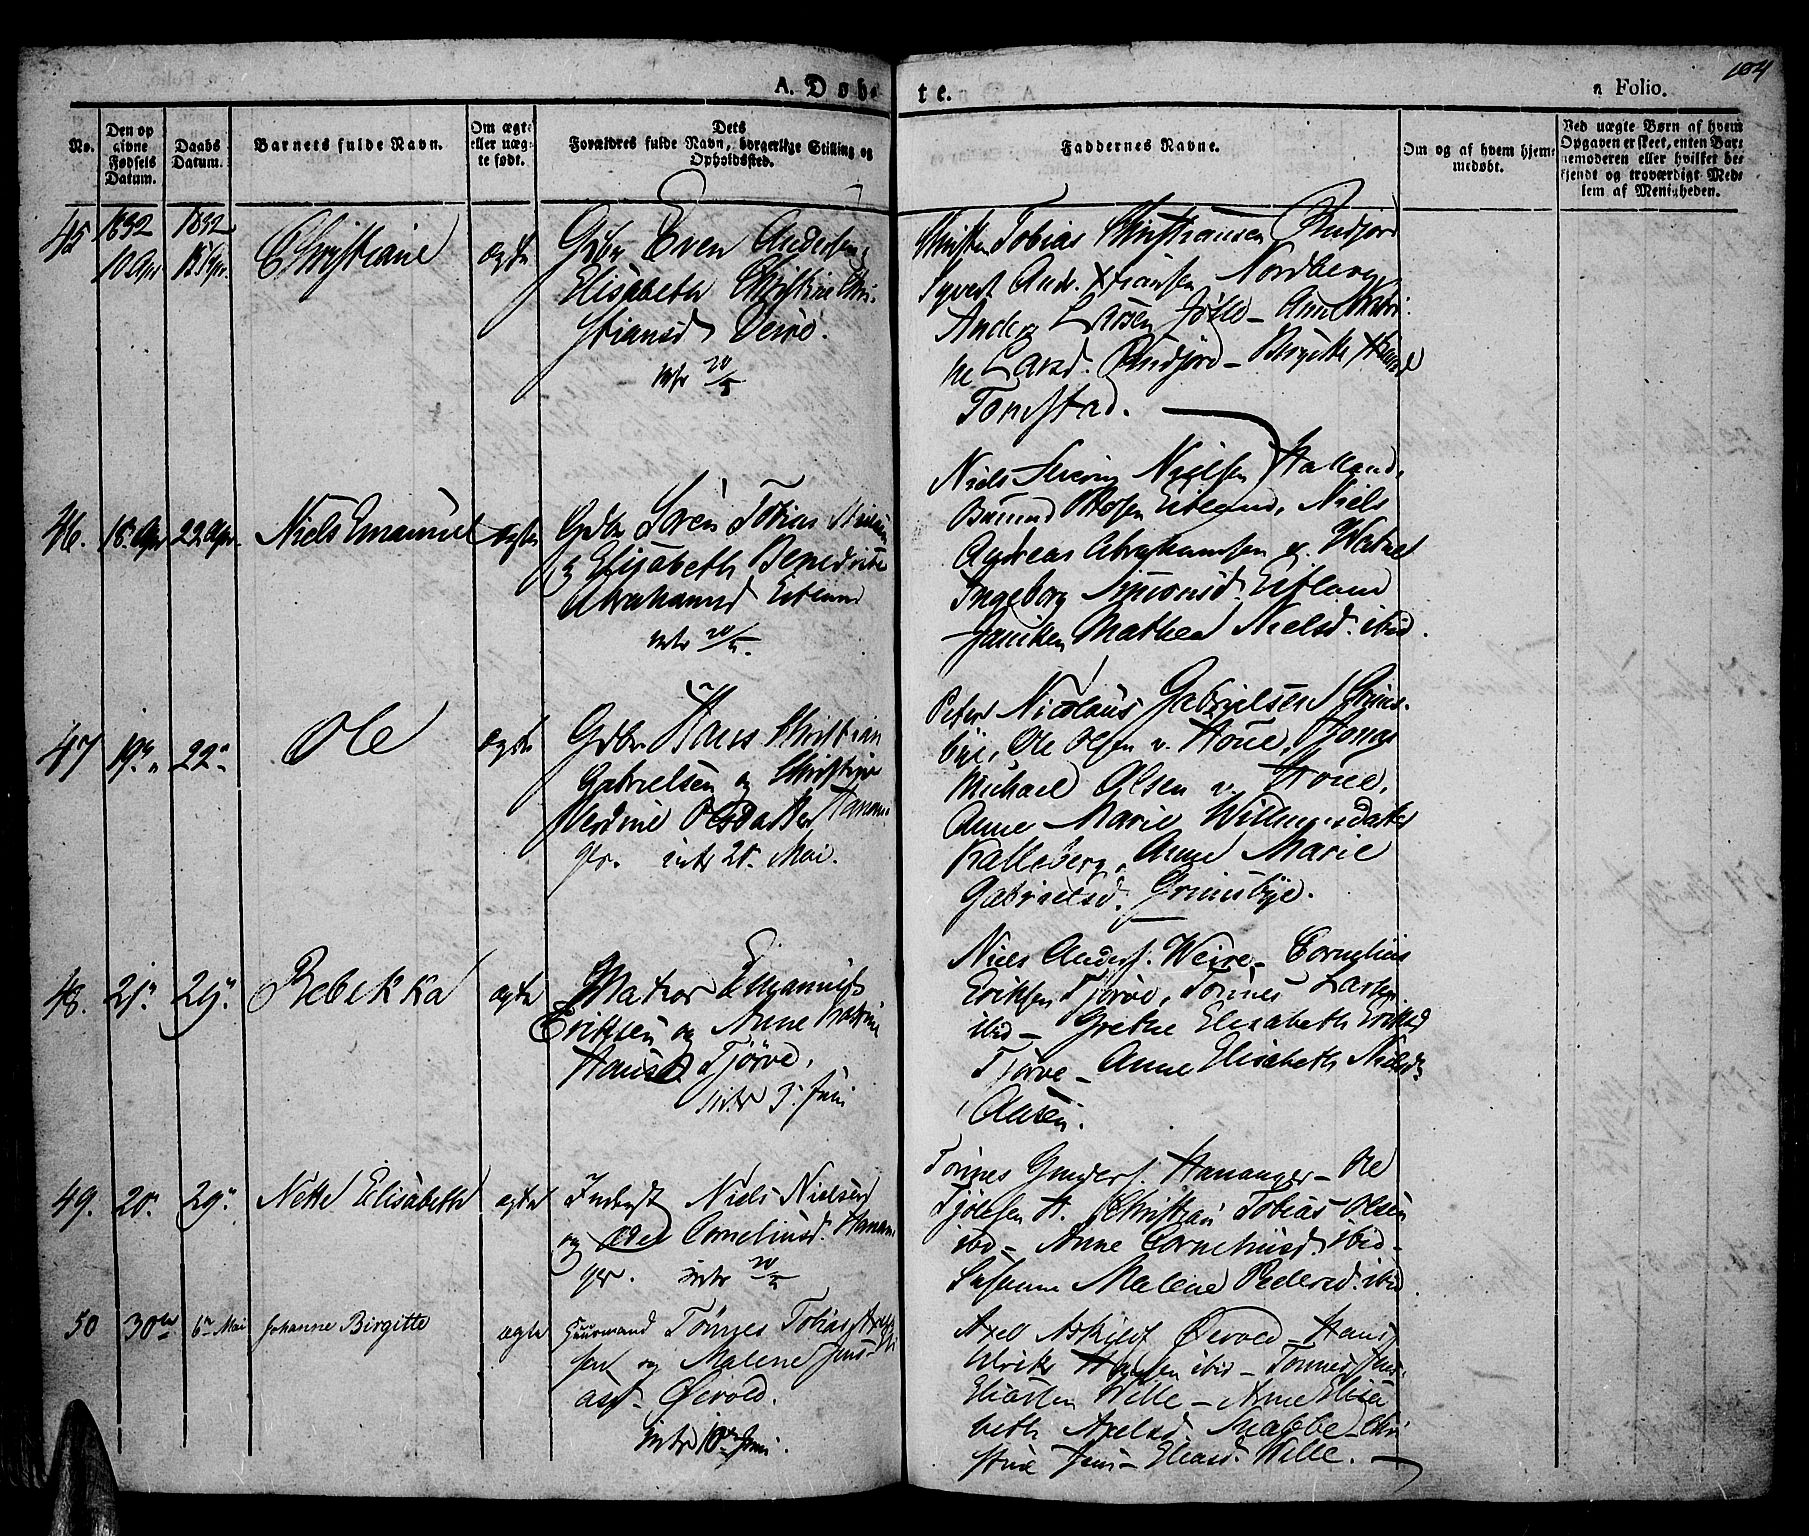 104
A. Døbte.
a Folio.
No.
Den opgivne Fødsels Datum.
Daabs Datum.
Barnets fulde Navn.
Om ægte eller uægte født.
Dets Forældres fulde Navn, borgerlige Stilling og Opholdssted.
Faddernes Navne.
Om og af hvem hjemmedøbt.
Ved uægte Børn af hvem Opgaven er skeet, enten Barnemoderen eller hvilket bekjendt og troværdigt Medlem af Menigheden.
45
1832
10 Apr
1832
15 Apr.
Christiane
ægte
Gdbr Even Andersen
Elisabeth Christine Chri-
stiansd Veire.
intr 20/5
Christen Tobias Christiansen Rudjord
Syvert And. Xtiansen Nordberg
Anders Larsen Jølle - Ane Kari-
ne Larsd. Rudjord - Birgitte
Tomstad.
46.
18. Apr
22 Apr.
Niels Emanuel
ægte
Gdbr Sören Tobias
& Elisabeth Benedicte
Abrahamsd Eitland
intr 20/5.
Niels Severin Nielsen Halland,
Eitland, Niels
Andreas Abrahamsen v. Hatvet
Ingeborg Simonsd. Eitland
Janiken Mathea Nielsd. ibid.
47
19de
22"
Ole
ægte
Gdbr Hans Christian
Gabrielsen og Christine
Verdine Olsdatter Hanan-
ger. intr 20. Mai.
Peter Nicolaus Gabrielsen Grims-
bye, Ole Olsen v. Houe, Hans
Michael Olsen v. Houe,
Anne Marie Willumsdatter
Kalleberg, Anne Marie
Gabrielsd. Grimsbye.
48.
21"
29".
Rebekka
ægte
Matros Emanuel
Eriksen og Anne
Hansd. Tjörve,
intr 3. Juni
Niels Anders. Weire - Cornelius
Eriksen Tjörve, Tönnes Larsen
ibid - Grethe Elisabeth Eriksd
Tjörve - Anne Elisabeth Nielsd
49.
20"
29"
Nette Elisabeth
ægte
Inderst Niels Nielsen
og Corneliusd. Hanan-
ger. intr 20/5
Tönnes Gunders. Hananger - Ole
H. Christian Tobias Olsen
ibd - Anne Corneliusd. ibid -
Susanne Malene Pedersd. ibid
50
30te
6te Mai
Johanne Birgitte
ægte
Huusmand Tønnes Tobias Axel-
sen og Malene Jens-
Øivold.
intr 10de Juni.
Axel Øivold - Hans
Ulrik Hansen ibid - Tönnes Jens
Eliassen Wille - Anne Elisa-
beth Axelsd. Snabbe Chri-
stine Jens- Eliasd. Wille.